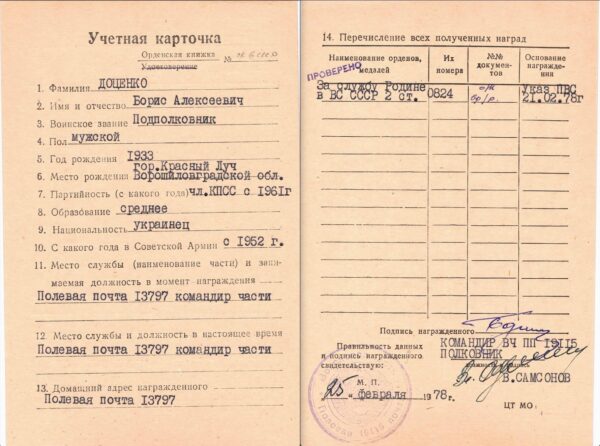 Учетная карточка
Орденская книжка №
Удостоверение
1. Фамилия ДОЦЕНКО
2. Имя и отчество Борис Алексеевич
3. Воинское звание Подполковник
4. Пол мужской
5. Год рождения 1933
гор.Красный Луч
6. Место рождения Ворошиловградской обл.
7. Партийность (с какого года) чл.КПСС с 1961г
8. Образование среднее
9. Национальность украинец
10. С какого года в Советской Армии с 1952 г.
11. Место службы (наименование части) и зани-
маемая должность в момент награждения
Полевая почта 13797 командир части
12 Место службы и должность в настоящее время
Полевая почта 13797 командир части
13. Домашний адрес награжденного
Полевая почта 13797
14. Перечисление всех полученных наград
Наименование орденов, медалей
Их номера
№№ документов
Основание награждения
ПРОВЕРЕНО
За службу Родине Указ ПВС
в ВС СССР 2 ст. 0824 21.02.78г
Подпись награжденного
Правильность данных и подпись награжденного свидетельствую:
КОМАНДИР ВЧ ПП 19115
ПОЛКОВНИК
В.САМСОНОВ
М. П.
"25" февраля 1978г.
ЦТ МО